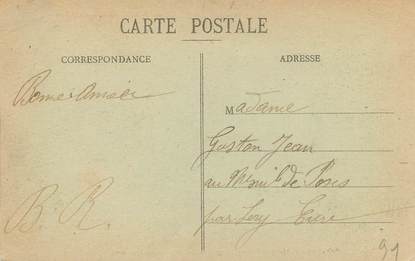 CARTE POSTALE
CORRESPONDANCE
ADRESSE
Bonne Année
B. R.
Madame
Gaston Jean
au Mesnil de Poses
par Léry Eure
91